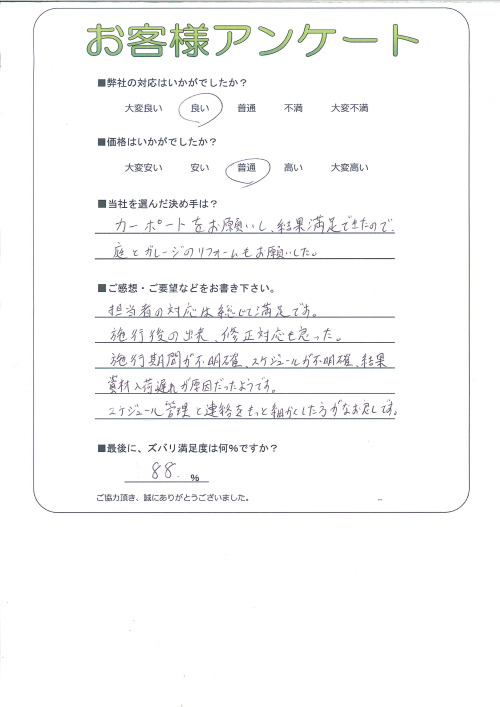 お客様アンケート
■弊社の対応はいかがでしたか？
大変良い 良い 普通 不満 大変不満
■価格はいかがでしたか？
大変安い 安い 普通 高い 大変高い
■当社を選んだ決め手は？
カーポートをお願いし、結果満足できたので、
庭とガレージのリフォームもお願いした。
■ご感想・ご要望などをお書き下さい。
担当者の対応は総じて満足です。
施行後の出来、修正対応も良った。
施行期間が不明確、スケジュールが不明確、結果
資材入荷遅れが原因だったようです。
スケジュール管理と連絡をもっと細かくした方がなお良しです。
■最後に、ズバリ満足度は何％ですか？
88. ％
ご協力頂き、誠にありがとうございました。